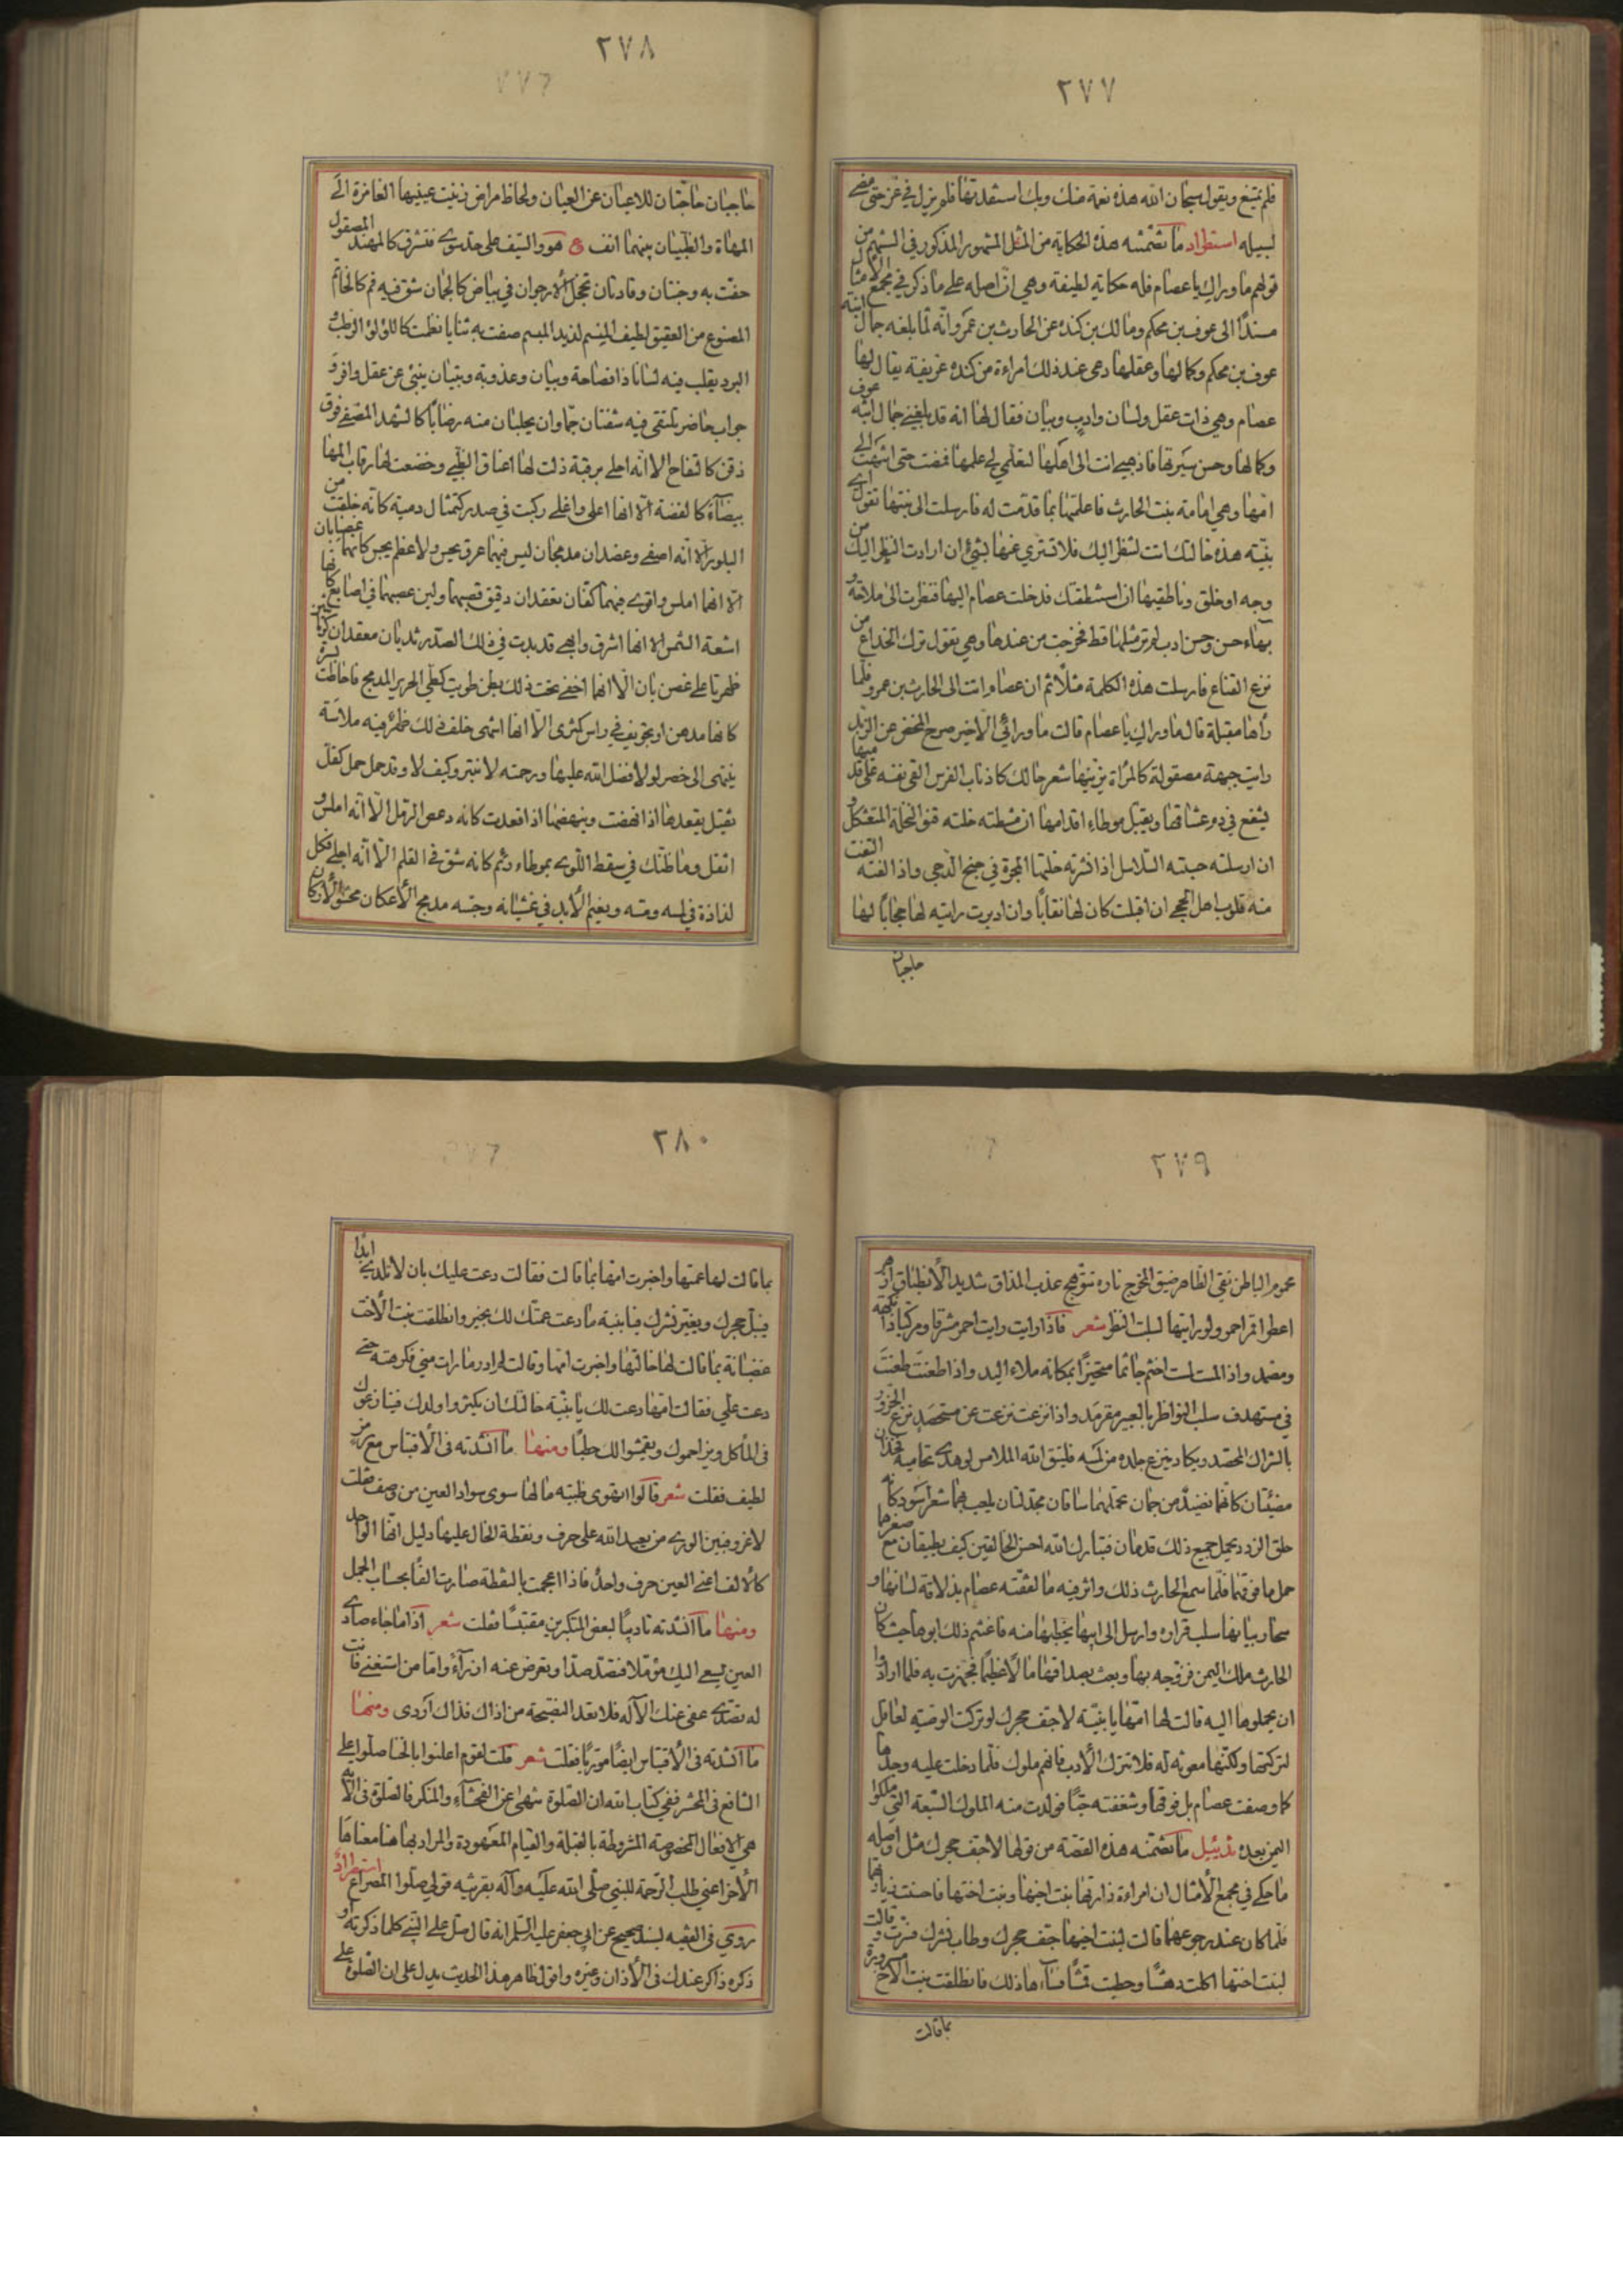 ٢٧٧
فلم يمتنع ويقول سبحان الله هذه نعمة منك وبك استفدتها فلم يزل في عز حتى مضى
لسبيله استطراد ما تضمنته هذه الحكاية من المثل المشهور المذكور في الشهم من
قولهم ما وراك يا عصام فله حكاية لطيفة وهي ان اصله على ما ذكر في مجمع الامثال
مسندًا الى عوف بن محكم ومالك بن كنده عن الحارث بن عمرو انه لما بلغه جمال ابنة
عوف بن محكم وكمالها وعقلها دعى عند ذلك امراءة من كنده عريفة يقال لها
عصام وهي ذات عقل ولسان وادب وبيان فقال لها انه قد بلغني جمال ابنه عوف
وكمالها وحسن سيرتها فاذهبي انت الى اهلها لتعلمي لي علمها فمضت حتى انتهت الى
امها وهي امامة بنت الحارث فاعلمتها بما قدمت له فارسلت الى بنتها تقول اي
بنيّة هذه خالتك اتت لتنظر اليك فلا تستري عنها بشئ ان ارادت النظر اليك من
وجه او خلق وناطقيها ان استنطقتك فدخلت عصام اليها فنظرت الى ملاحة و
بهاء حسن وحسن ادب لم تر مثلها قط فخرجت من عندها وهي تقول ترك الخداع من
نزع القناع فارسلت هذه الكلمة مثلًا ثم ان عصام اتت الى الحارث بن عمرو فلما
رأها مقبلة قال ما وراك يا عصام قالت ما ورائي الا خير صرح المخض عن الزبد
رايت جبهة مصقولة كالمرأة يزينها شعر حالك كاذناب الفرس القى نفسه على قد ميها
ليشفع في دم عشاقها ويقبل موطاء اقدامها ان مشطته خلته قنو النخلة المتعثكل و
ان ارسلته حسبته السلاسل اذا نشرته خلتها المجرة في جنح الدجى واذا لفته التفت
منه قلوب اهل الحجى ان اقبلت كان لها نقابًا وان ادبرت رايته لها حجابًا لها
حاجبان
٢٧٨
حاجبان حاجبان للاعيان عن العيان ولحاظ مراض زينت عينيها الغامزة الى
المهاة والظبيان بينهما انف ع هو والسيف على حد سوى فتشرق كالمهند المصقول
حفت به وجنتان وقادتان تخجل الارجوان في بياض كالجمان شق فيه فم كالخاتم
المصنوع من العقيق لطيف المنسم لذيذ المبسم صفت به ثنايا نظمت كاللؤلؤ الرطب و
البرد يقلب فيه لسانا ذا فصاحة وبيان وعذوبة وبنيان ينبئ عن عقل وافر و
جواب حاضر يلتقي فيه شفتان حماوان يجلبان منه رضابًا كالشهد المصفى فوق
ذقن كالتفاح الا انه احلى برقبة ذلت لها اعناق الظبي وخضعت لها رقاب المها
بيضاء كالفضة الا انها اعلى واغلى ركبت في صدر كتمثال دمية كانه خلقت من
البلور الا انه اصفى وعضدان مدمجان ليس فيهما عرق يحس ولا عظم يجس كانهما غضابان
الا انها املس واقوى فيهما كفان تعقدان دقيق قصبهما ولين عصبهما في اصابع كانها
اشعة الشمس الا انها اشرق وابهى قد بدت في ذلك الصدر ثديان معقدان
ظهرتا على غصن بان الا انها اخفى تحت ذلك بطن طويت كطي الحرير المدمج فاحاطت
كانها مدهن او تجويف في راس كمثرى الا انها اشهى خلف ذلك ظهر فيه ملاسة
ينتهي الى خصر لولا فضل الله عليها ورحمته لانبتر وكيف لا وقد حمل حمل كفل
ثقيل يقعدها اذا نهضت وينهضها اذا قعدت كانه دعص الرمل الا انه املس و
اثقل وما ظنك في سقط اللوى بموطاء وشم كانه شق في القلم الا انه احلى فكل
لذاذة في لمسه ومسه ونعيم الأبد في غشيانه وجسه مدمج الأعكان محشو الأركان
٢٧٩
محموم الباطن نقي الظاهر ضيق المخرج ناره تتوهج عذب المذاق شديد الانطباق ازهر
اعطر اقمر احمر ولو رايتها لسلب النظر شعر فاذا رايت رايت احمر مشرقا ومركبا ذا بهجة
ومصمد واذا لمست لمست اخثم جاثما متحيزًا بمكانه ملاء اليد واذا طعنت طعنت
في مستهدف سلب النواظر بالعبير مقرمد واذا نزعت نزعت عن مستحصد نزع الحزور
بالرشاء المحصد ويكاد ينزع جلده من لمسه
مضيئتان كانهما نضيد من جمان تحملهما ساقان مجدلتان يلعب بهما شعر اسود كانه
حلق الزرد يحمل جميع ذلك قدمان فتبارك الله احسن الخالقين كيف يطيقان مع صغرهما
حمل ما فوقهما فلما سمع الحارث ذلك واثر فيه ما لفقته عصام بذلاقة لسانها و
سحار بيانها سلب قراره وارسل الى ابيها يخطبها منه فاغتنم ذلك ابوها حيث كان
الحارث ملك اليمن فزوجه بها وبعث بصداقها مالا عظيمًا فجهزت به فلما ارادوا
ان يحملوها اليه قالت لها امها يا بنيّة لا جف حجرك لو تركت الوصية لعاقل
لتركتها ولكنها معونة له فلا تترك الأدب فانهم ملوك فلما دخلت عليه وجدها
كما وصفت عصام بل فوقها وشغفته حبًا فولدت منه الملوك السبعة التي ملكوا
اليمن بعده تذييل ما تضمنه هذه القصة من قولها لا جف حجرك مثل واصله
ما حكي في مجمع الأمثال ان امراءة زارتها بنت اخيها وبنت اختها فاحسنت زيارتها
فلما كان عند رجوعهما قالت لبنت اخيها جف حجرك وطاب نشرك و قالت
لبنت اختها اكلت دهشًا وحطبت قمشًا فساءها ذلك فانطلقت بنت الأخ مسرورة
بما قالت
٢٨٠
بما قالت لها عمتها واخبرت امها بما قالت فقالت دعت عليك بان لا تلدي ابدًا
فيبتل حجرك ويغير نشرك فيا بنية ما دعت عمتك لك بخير وانطلقت بنت الأخت
غضبانة بما قالت لها خالتها واخبرت امها وقالت لم ادر ما رات مني فكرهته حتى
دعت علي فقالت امها دعت لك يا بنيّة خالتك ان يكثروا ولدك فينازعوك
في المأكل ويزاحموك ويقمشوا لك حطبًا ومنها ما انشدته في الأقتباس مع رمز
لطيف فقلت شعر قالوا اتهوى ظبية ما لها سوى سواد العين من وصف فقلت
لا غرو فبين الورى من يعبد الله على حرف ونقطة الخال عليها دليل انها الواحد
كالألف اعني العين حرف واحد فاذا اعجمت بالنقطة صارت الفًا بحساب الجمل
ومنها ما انشدته تاديبًا لبعض المتكبرين مقتبسًا فقلت شعر اذا ما جاء صادي
العين يسعى اليك مؤملا فتصد صدا وتعرض عنه ان راءٓ واما من استغنى فانت
له تصدى عفى عنك الآله فلا تعد النصيحة من اذاك فذاك اردى ومنها
ما انشدته في الأقتباس ايضًا موريًا فقلت شعر قلت لقوم اعلنوا بالخنا صلوا على
الشافع في المحشر ففي كتاب الله ان الصلوة تنهى عن الفحشاء والمنكر فالصلوة في الآية
هي الافعال المخصوصة المشروطة بالقبلة والقيام المعهودة والمراد بها هنا معناها
الأخر اعني طلب الرحمة للنبي صلى الله عليه وآله بقرينة قولي صلوا المصراع استطراد
روي في الفقيه بسند صحيح عن ابي جعفر عليه السلم انه قال صل على النبي كلما ذكرته او
ذكره ذاكر عندك في الأذان وغيره واقول ظاهر هذا الحديث يدل على ان الصلوة على